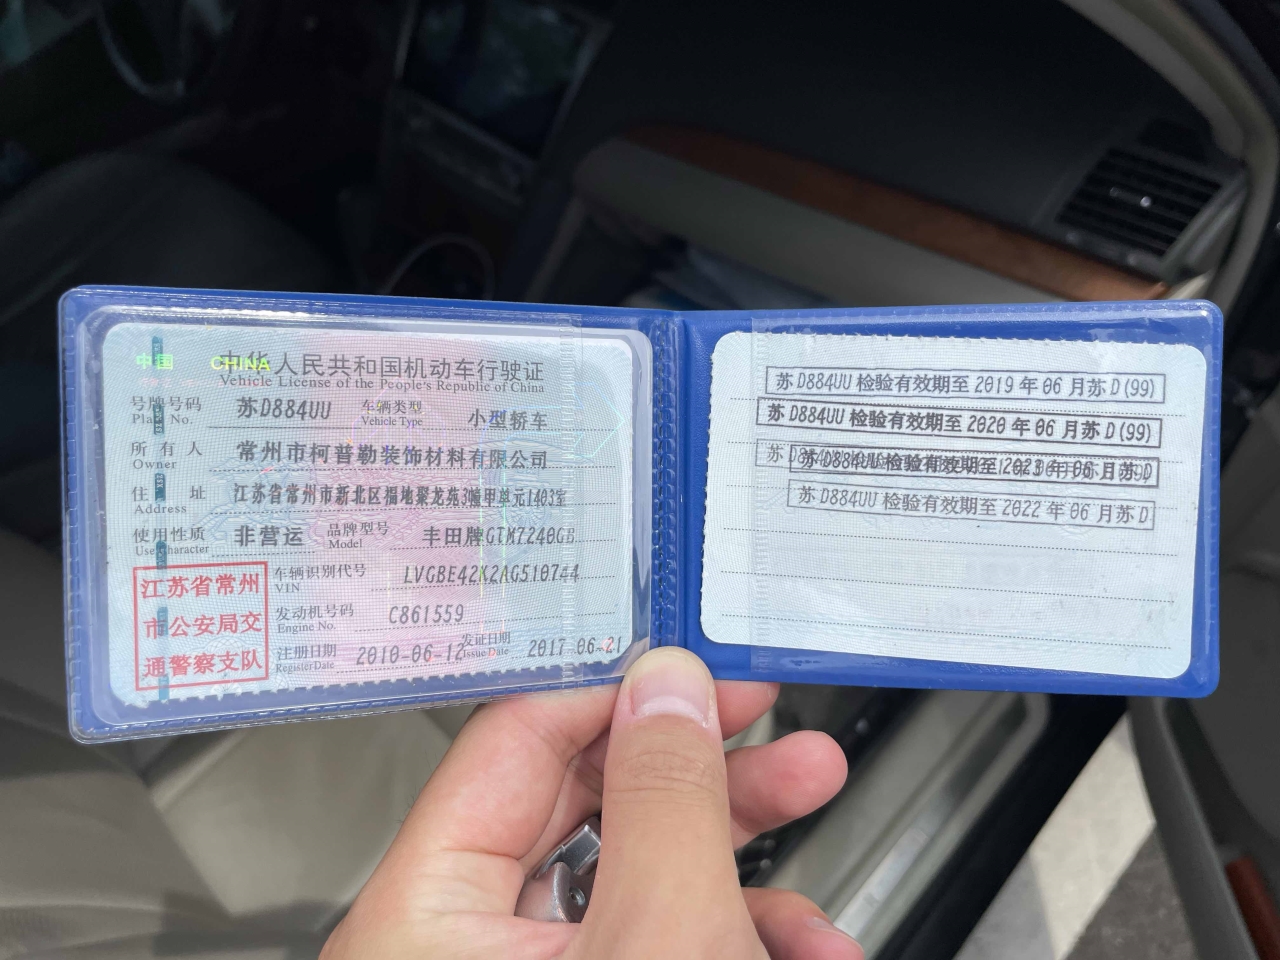 中国 CHINA
中华人民共和国机动车行驶证
Vehicle License of the People's Republic of China
号牌号码 苏D884UU 车辆类型 小型轿车
Plate No. Vehicle Type
所有人 常州市柯普勒装饰材料有限公司
Owner
住址 江苏省常州市新北区福地聚龙苑3幢甲单元1403室
Address
使用性质 非营运 品牌型号 丰田牌GTM7240GB
Use Character Model
车辆识别代号 LVGBE42K2AG510744
VIN
发动机号码 C861559
Engine No.
注册日期 2010-06-12 发证日期 2017-06-21
Register Date Issue Date
江苏省常州
市公安局交
通警察支队
苏D884UU 检验有效期至 2019 年 06 月苏D(99)
苏D884UU 检验有效期至 2020 年 06 月苏D(99)
苏D884UU 检验有效期至 2023 年 06 月苏D
苏D884UU 检验有效期至 2022 年 06 月苏D